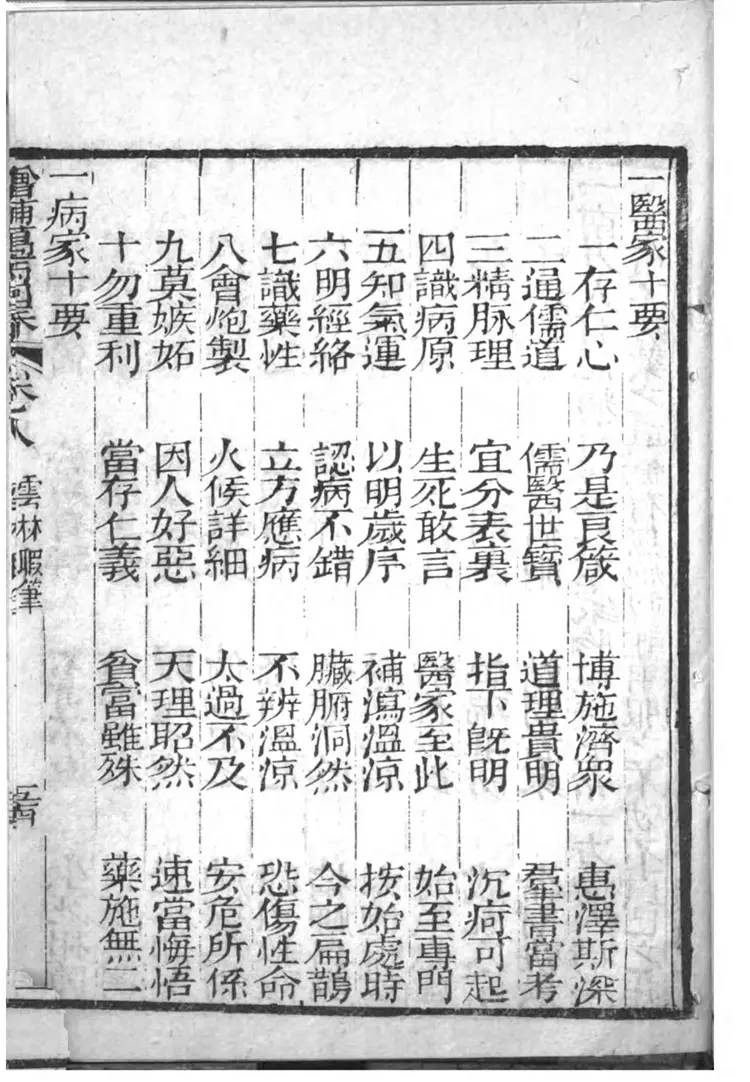 一醫家十要
一存仁心 乃是良箴 博施濟衆 惠澤斯深
二通儒道 儒醫世寶 道理貴明 羣書當考
三精脉理 宜分表裏 指下旣明 沉疴可起
四識病原 生死敢言 醫家至此 始至專門
五知氣運 以明歲序 補瀉溫凉 按始處時
六明經絡 認病不錯 臟腑洞然 今之扁鵲
七識藥性 立方應病 不辨溫凉 恐傷性命
八會炮製 火候詳細 太過不及 安危所係
九莫嫉妬 因人好惡 天理昭然 速當悔悟
十勿重利 當存仁義 貧富雖殊 藥施無二
一病家十要
卷八 雲林暇筆